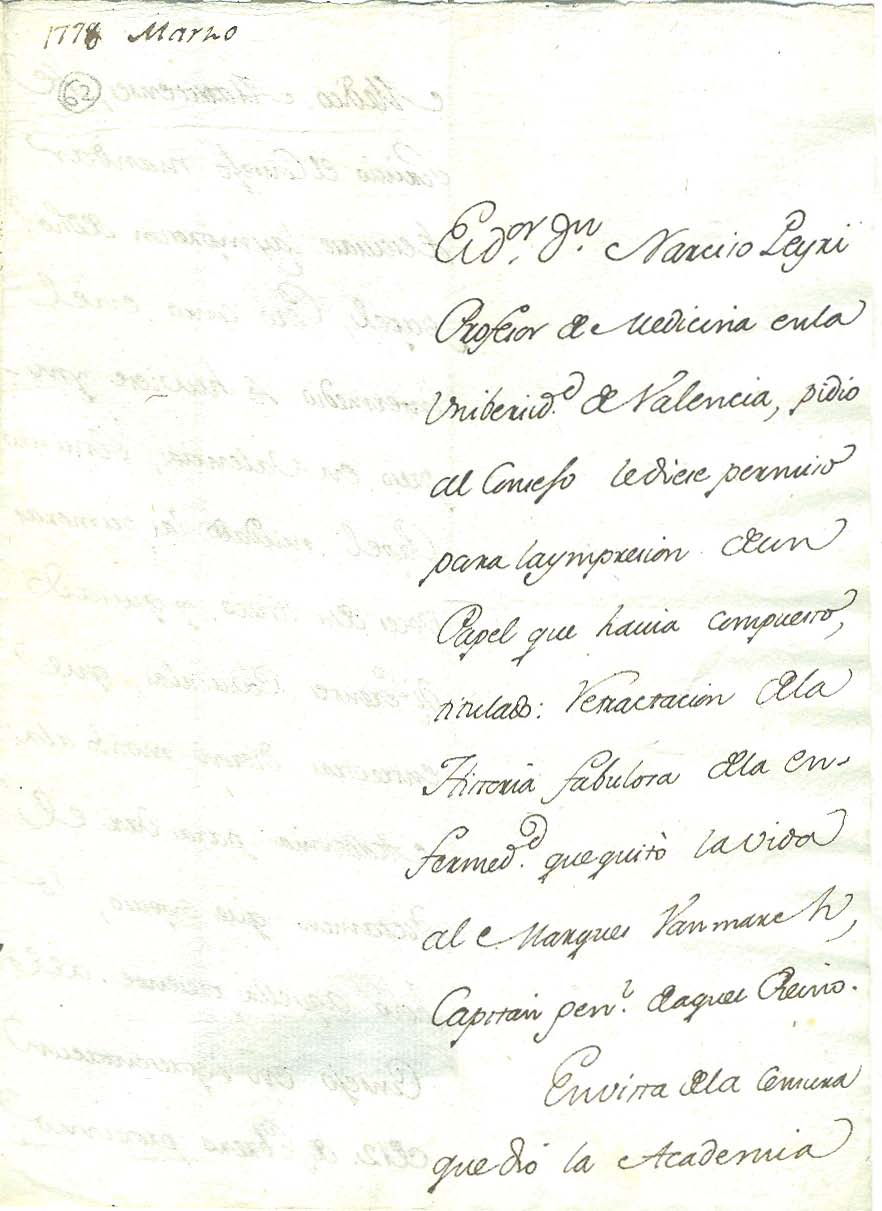 1778 Marzo
62
El d.or D.n Narciso Peyri
Profesor de Medicina en la
Unibersid.d de Valencia, pidio
al Consejo le diese permiso
para la ympresion de un
Papel que havia compuesto,
titulado: Retractacion de la
Historia fabulosa de la en-
fermed.d que quitò la vida
al Marques Vanmarch,
Capitan gen.l de aquel Reino.
En vista de la censura
que dió la Academia